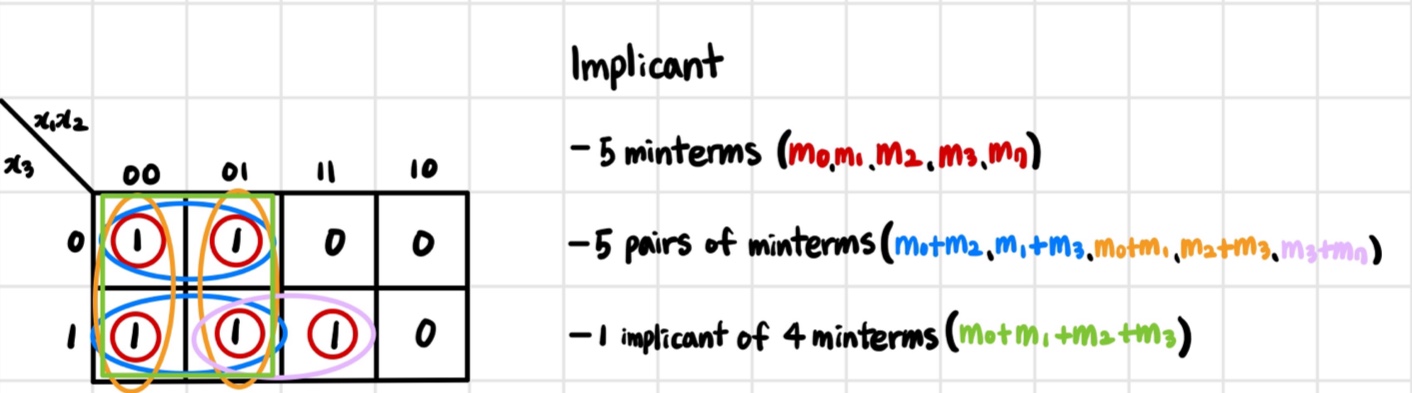 Implicant
x₁x₂
x₃
00 01 11 10
0 1 1 0 0
1 1 1 1 0
- 5 minterms (m₀, m₁, m₂, m₃, m₇)
- 5 pairs of minterms (m₀+m₂, m₁+m₃, m₀+m₁, m₂+m₃, m₃+m₇)
- 1 implicant of 4 minterms (m₀+m₁+m₂+m₃)